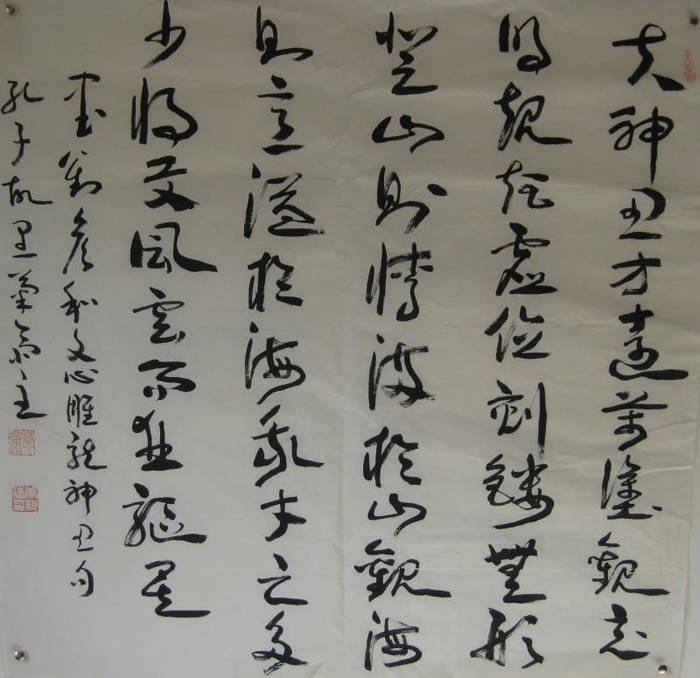 夫神思方運萬塗
規矩虛位刻鏤無形
登山則情滿於山觀海
則意溢於海我才之多
少將與風雲而並驅矣
書劉彥和文心雕龍神思句
孔子故里